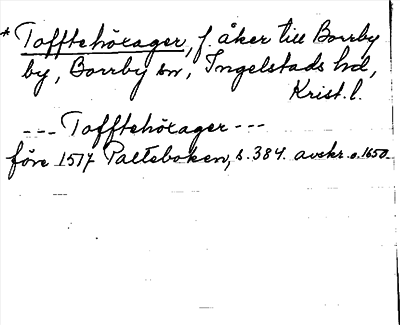 * Tofftehöxager, f. åker till Borrby
by, Borrby sn, Ingelstads hd,
Krist. l.
--- Tofftehöxager ---
före 1517 Palteboken, s. 384. avskr. o. 1650.